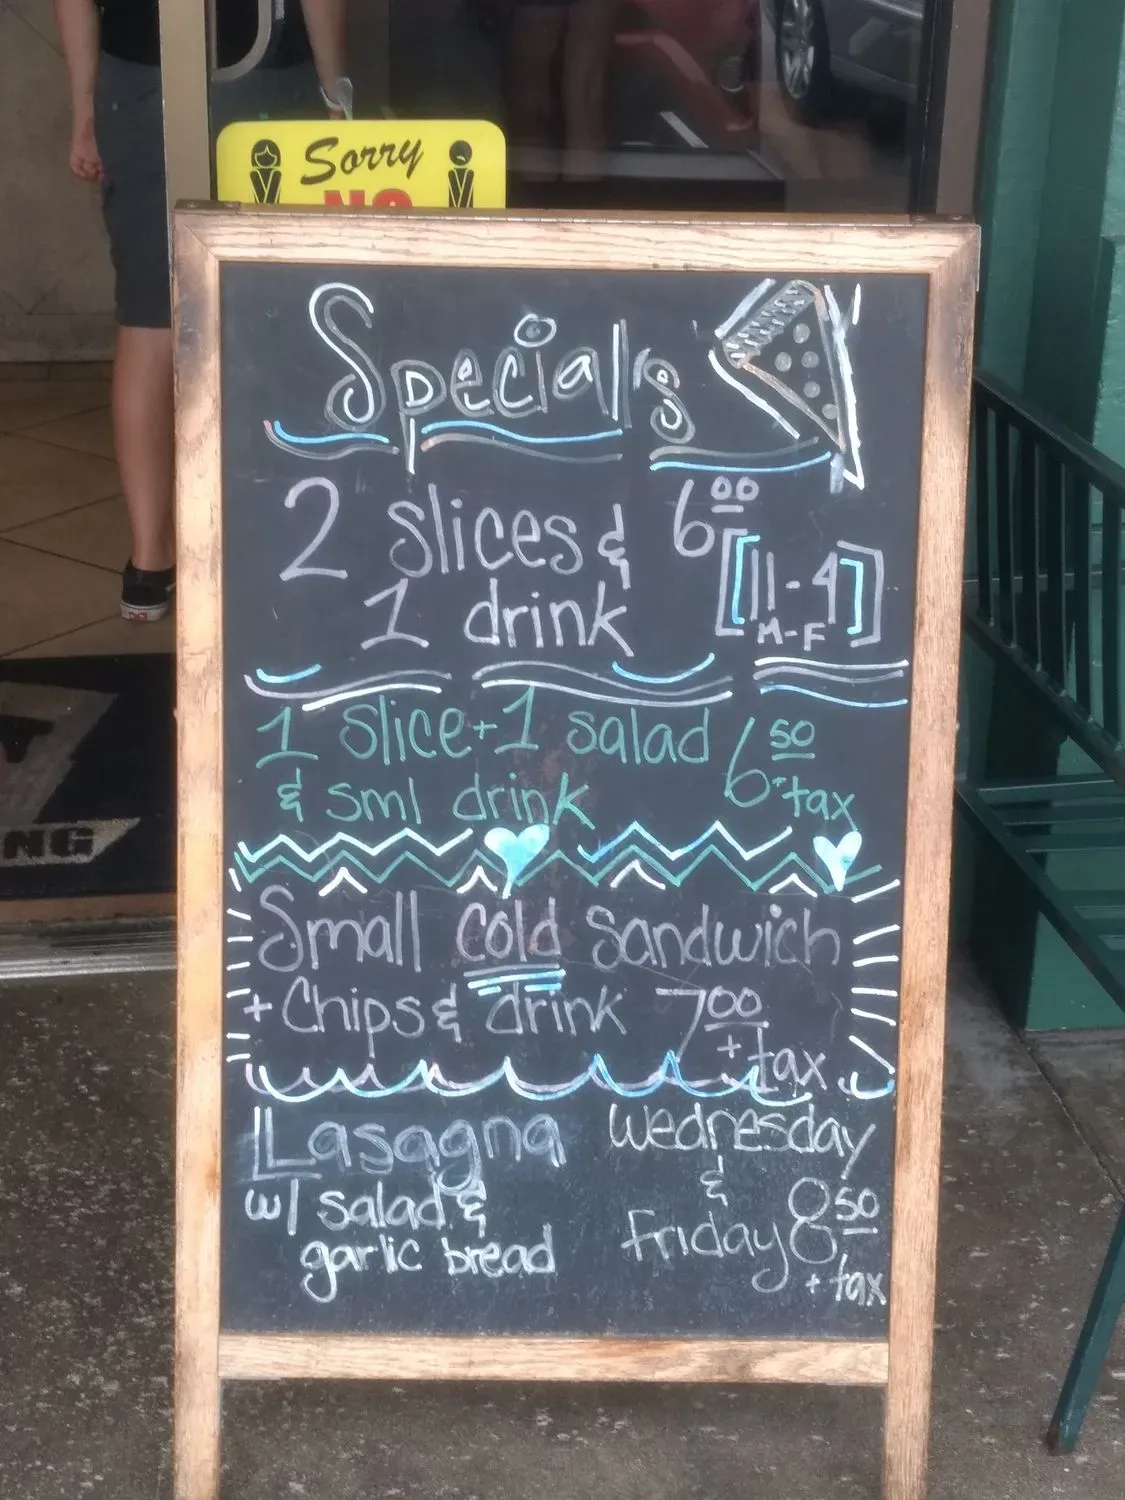 Sorry
NO
Specials
2 slices & 6 00
1 drink [11-4]
M-F
1 slice + 1 salad 6 50
& sml drink + tax
Small cold Sandwich
+ Chips & drink 7 00
+ tax
Lasagna Wednesday
w/ salad & &
garlic bread Friday 8 50
+ tax
NG